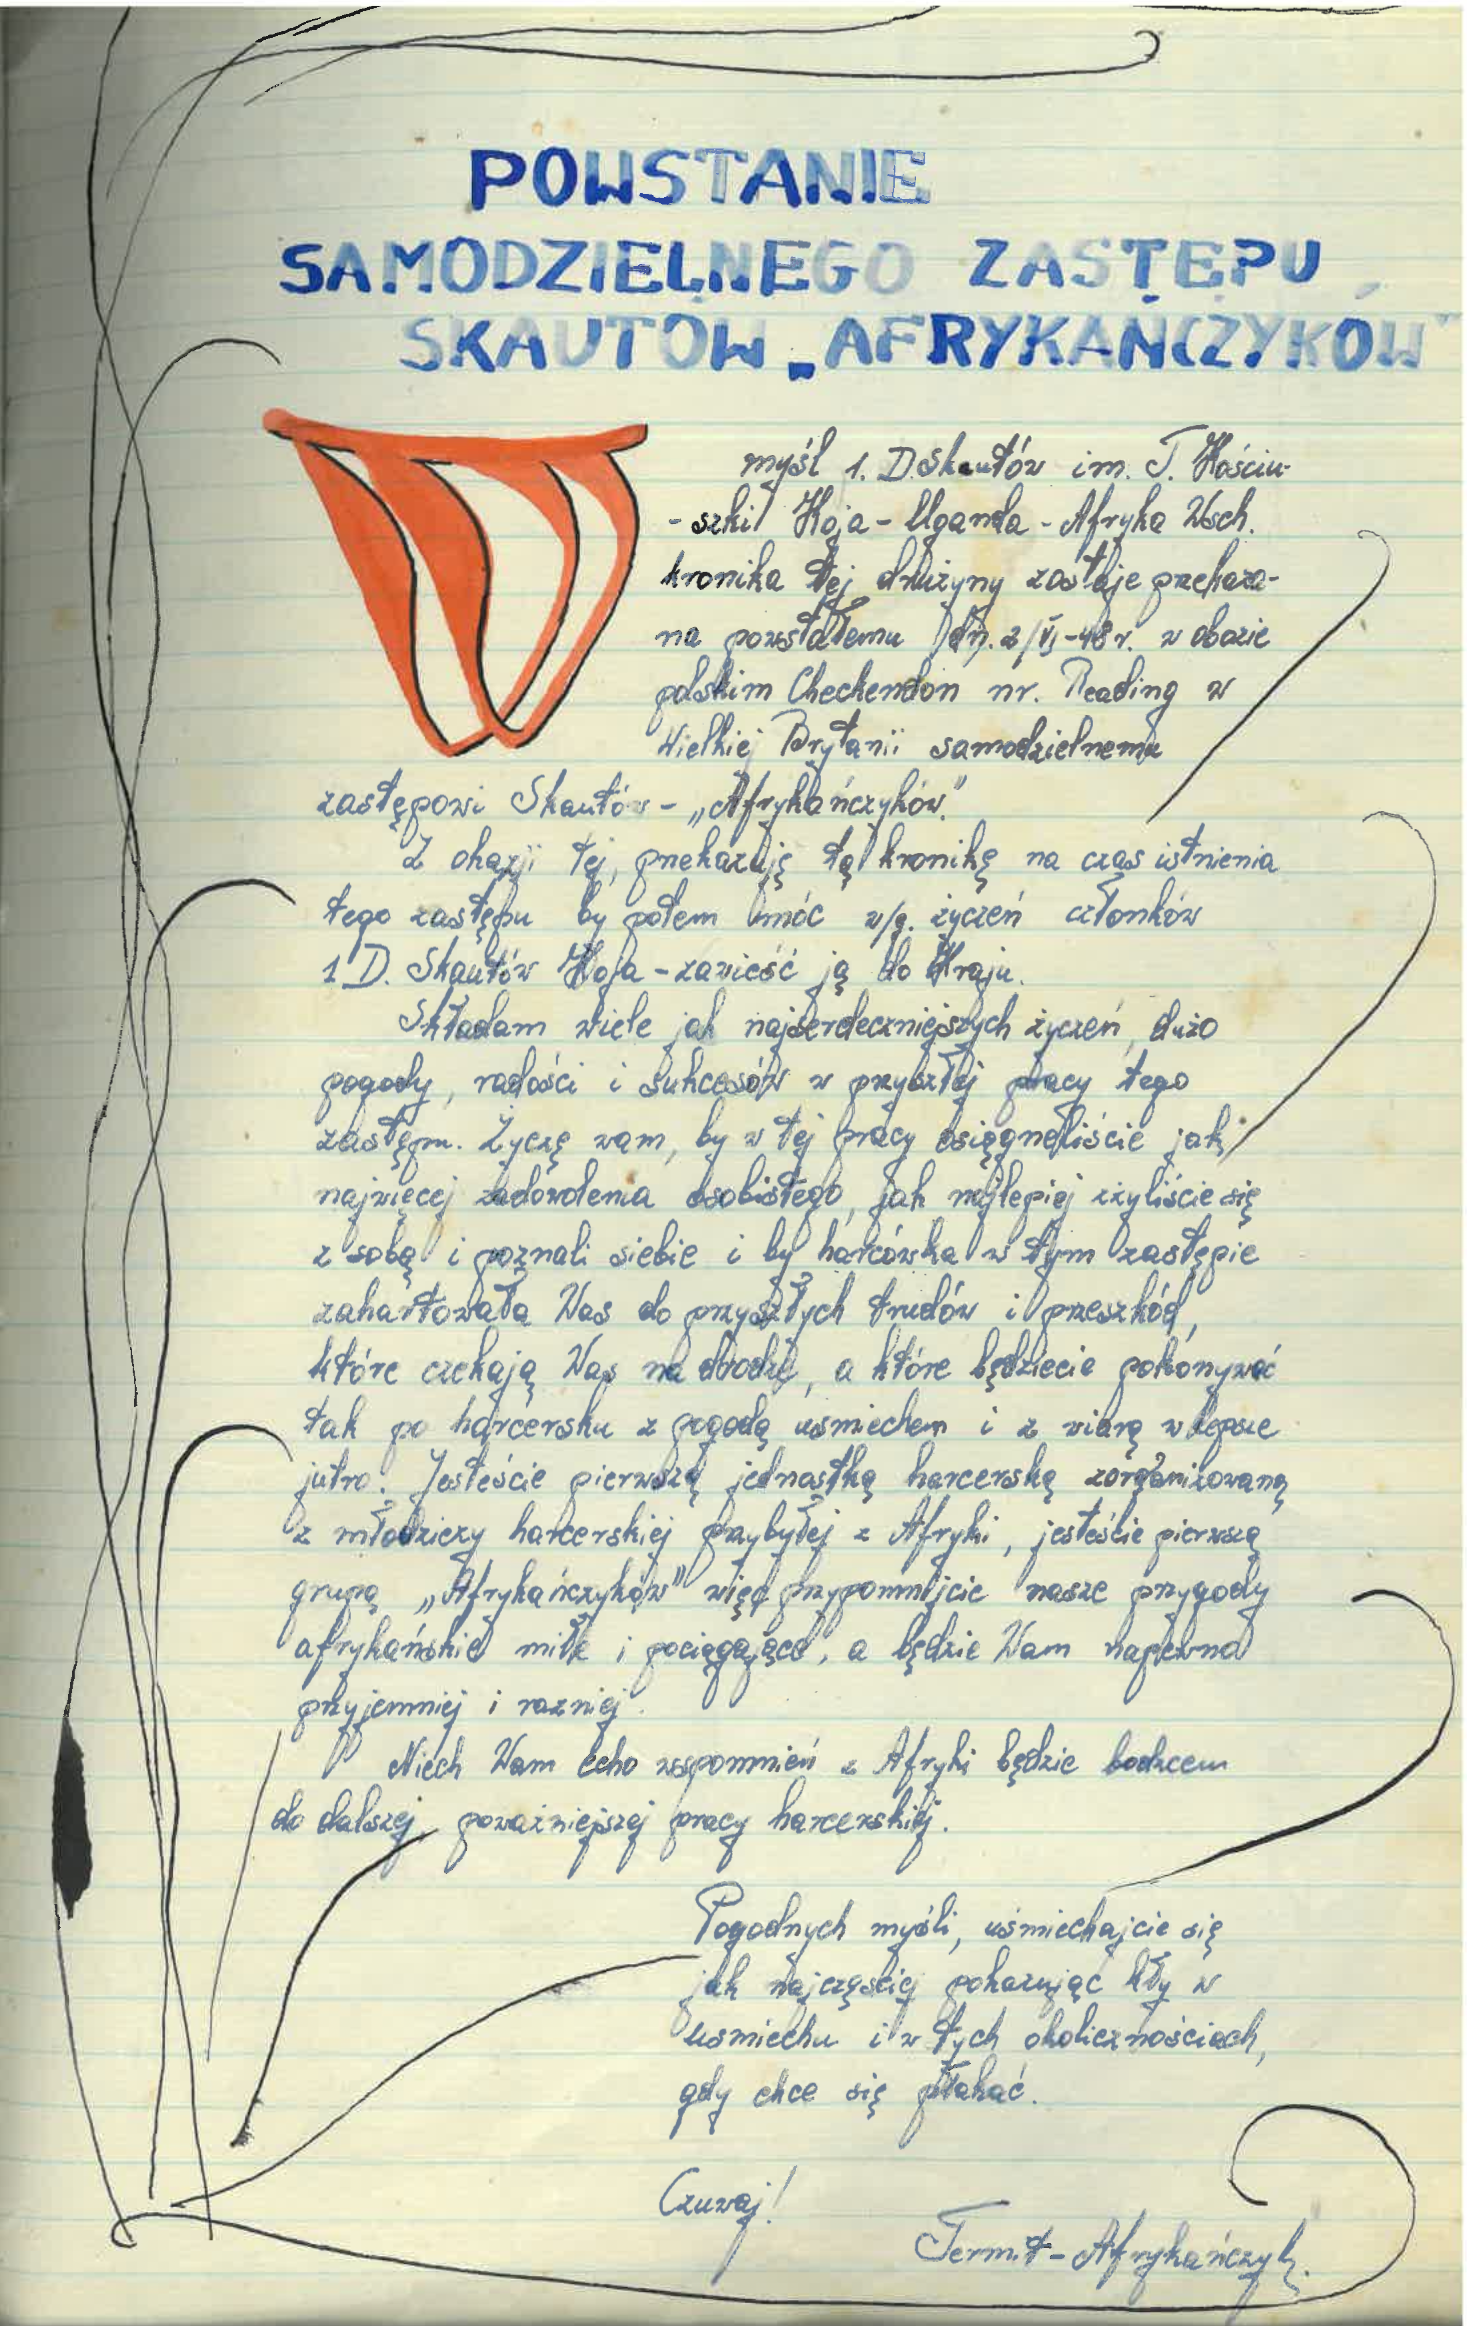 POWSTANIE
SAMODZIELNEGO ZASTĘPU
SKAUTÓW „AFRYKAŃCZYKÓW"
W myśl 1. D. Skautów im. T. Kościu-
-szki Koja - Uganda - Afryka Wsch.
kronika tej drużyny zostaje przekaza-
na powstałemu dn. 2/VI-48 r. w obozie
polskim Checkendon nr. Reading w
Wielkiej Brytanii samodzielnemu
zastępowi Skautów - „Afrykańczyków."
Z okazji tej, przekazuję tą kronikę na czas istnienia
tego zastępu by potem móc w/g. życzeń członków
1 D. Skautów Koja - zawieść ją do Kraju.
Składam wiele jak najserdeczniejszych życzeń, dużo
pogody, radości i sukcesów w przyszłej pracy tego
zastępu. Życzę wam, by w tej pracy osięgnęliście jak
najwięcej zadowolenia osobistego, jak najlepiej zżyliście się
z sobą i poznali siebie i by harcówka w tym zastępie
zahartowała Was do przyszłych trudów i przeszkód,
które czekają Was na drodze, a które będziecie pokonywać
tak po harcersku z pogodą uśmiechem i z wiarą w lepsze
jutro. Jesteście pierwszą jednostką harcerską zorganizowaną
z młodzieży harcerskiej przybyłej z Afryki, jesteście pierwszą
grupą „Afrykańczyków" więc przypomnijcie nasze przygody
afrykańskie miłe i pociągające, a będzie Wam napewno
przyjemniej i raźniej.
Niech Wam echo wspomnień z Afryki będzie bodźcem
do dalszej, poważniejszej pracy harcerskiej.
Pogodnych myśli, uśmiechajcie się
jak najczęściej pokazując kły w
uśmiechu i w tych okolicznościach,
gdy chce się płakać.
Czuwaj!
Termit - Afrykańczyk.